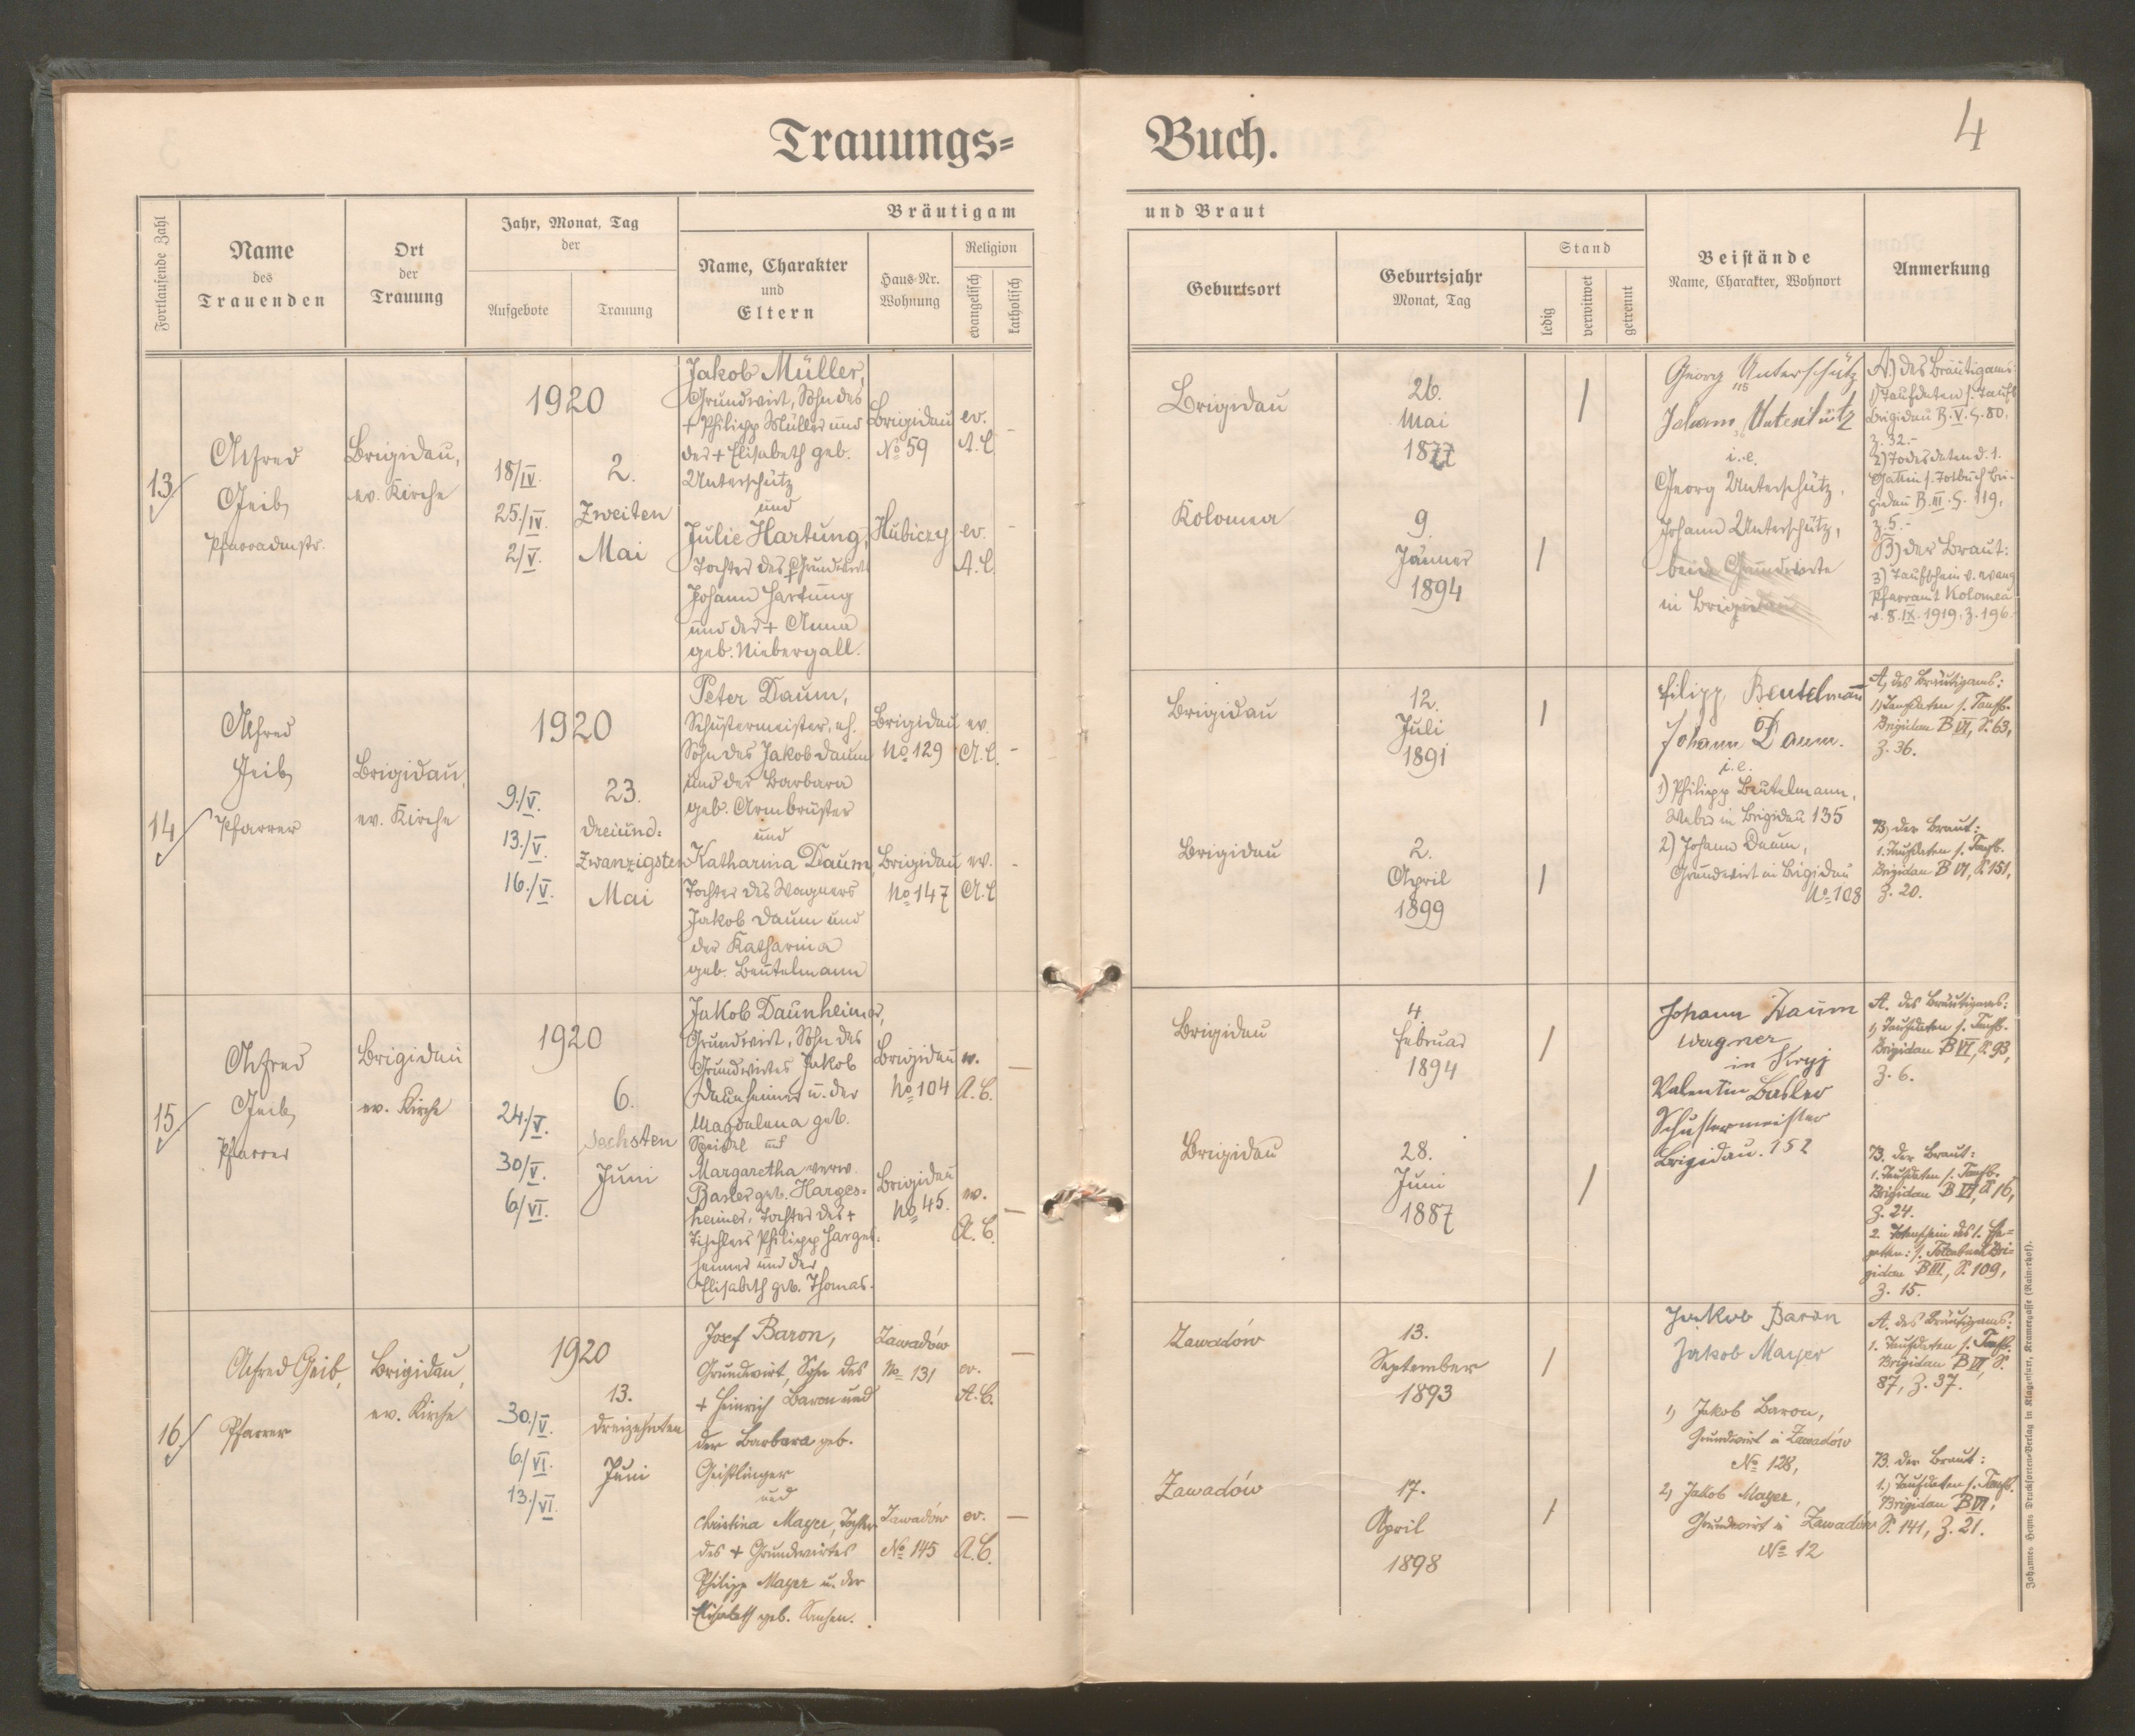 Trauungs=
Buch.
4
Fortlaufende Zahl
Name
des
Trauenden
Ort
der
Trauung
Jahr, Monat, Tag
der
Aufgebote
Trauung
Bräutigam
Name, Charakter
und
Eltern
Haus-Nr.
Wohnung
Religion
evangelisch
katholisch
und Braut
Geburtsort
Geburtsjahr
Monat, Tag
Stand
ledig
verwitwet
getrennt
Beistände
Name, Charakter, Wohnort
Anmerkung
13
Alfred
Geib,
Pfarradmstr.
Brigidau,
ev. Kirche
1920
18/IV.
25./IV.
2/V.
2.
Zweiten
Mai
Jakob Müller,
Grundwirt, Sohn des
+ Philipp Müller und
der + Elisabeth geb.
Unterschütz
und
Julie Hartung,
Tochter des Grundwirts
Johann Hartung
und der + Anna
geb. Niebergall.
Brigidau
No 59
Hubiczy
ev.
A.C.
ev.
A.C.
Brigidau
26.
Mai
1877
Kolomea
9.
Jänner
1894
Georg Unterschütz
115
Johann Unterschütz
i.e.
Georg Unterschütz,
Johann Unterschütz,
beide Grundwirte
in Brigidau
A.) des Bräutigams:
1) Taufdaten s. Taufb.
Brigidau B. V. S. 80,
Z. 32.-
2) Todesdaten d. 1.
Gattin s. Totbuch Bri-
gidau B. III. S. 119,
Z. 5.-
B) der Braut:
3) Taufschein v. evang
Pfarramt Kolomea
v. 8. IX. 1919, Z. 196.
14
Alfred
Geib,
Pfarrer
Brigidau,
ev. Kirche
1920
9./V.
13./V.
16./V.
23.
dreiund=
zwanzigsten
Mai
Peter Daum,
Schustermeister, eh.
Sohn des Jakob Daum
und der Barbara
geb. Armbrüster
und
Katharina Daum,
Tochter des Wagners
Jakob Daum und
der Katharina
geb. Beutelmann
Brigidau
No 129
Brigidau
No 147
ev.
A.C.
ev.
A.C
Brigidau
12.
Juli
1891
Brigidau
2.
April
1899
Filipp Beutelmann
Johann Daum.
i.e.
1) Philipp Beutelmann,
Weber in Brigidau 135
2) Johann Daum,
Grundwirt in Brigidau
No 108
A, des Bräutigams:
1) Taufdaten s. Taufb.
Brigidau B VI, S. 63,
Z. 36.
B, der Braut:
1. Taufdaten s. Taufb.
Brigidau B VI, S. 151,
Z. 20.
15
Alfred
Geib,
Pfarrer
Brigidau
ev. Kirche
1920
24./V.
30/V.
6/VI.
6.
sechsten
Juni
Jakob Daunheimer,
Grundwirt, Sohn des
Grundwirtes Jakob
Daunheimer u. der
Magdalena geb.
Speidel und
Margaretha verw.
Basler geb. Harges=
heimer, Tochter des +
Tischlers Philipp Harges=
heimer und der
Elisabeth geb. Thomas.
Brigidau
No 104
Brigidau
No 45.
ev.
A.C.
ev.
A.C.
Brigidau
4.
Februar
1894
Brigidau
28.
Juni
1887
Johann Daum
Wagner
in Stryj
Valentin Basler
Schustermeister
Brigidau. 152
A. des Bräutigams:
1) Taufdaten s. Taufb.
Brigidau B VI, S. 93,
Z. 6.
B. der Braut:
1. Taufdaten s. Taufb.
Brigidau B VI, S. 16,
Z. 24.
2. Totenschein des 1. Ge=
gatten: s. Totenbuch Bri=
gidau B III, S. 109,
Z. 15.
16.
Alfred Geib,
Pfarrer
Brigidau,
ev. Kirche
1920
30./V.
6/VI.
13./VI.
13.
dreizehnten
Juni
Josef Baron,
Grundwirt, Sohn des
+ Heinrich Baron und
der Barbara geb.
Geißlinger
und
Christina Mayer, Tochter
des + Grundwirtes
Philipp Mayer u. der
Elisabeth geb.
Zawadów
No 131
Zawadów
No 145
ev.
A.C.
ev.
A.C.
Zawadów
13.
September
1893
Zawadów
17.
April
1898
Jakob Baron
Jakob Mayer
1, Jakob Baron,
Grundwirt in Zawadów
No 128,
2, Jakob Mayer,
Grundwirt in Zawadów
No 12
A. des Bräutigams:
1. Taufdaten s. Taufb.
Brigidau B VI, S.
87, Z. 37.
B. der Braut:
1.) Taufdaten s. Taufb.
Brigidau B VI,
S. 141, Z. 21.
Johannes Heyns Drucksorten-Verlag in Klagenfurt, Kramergasse (Rainerhof).